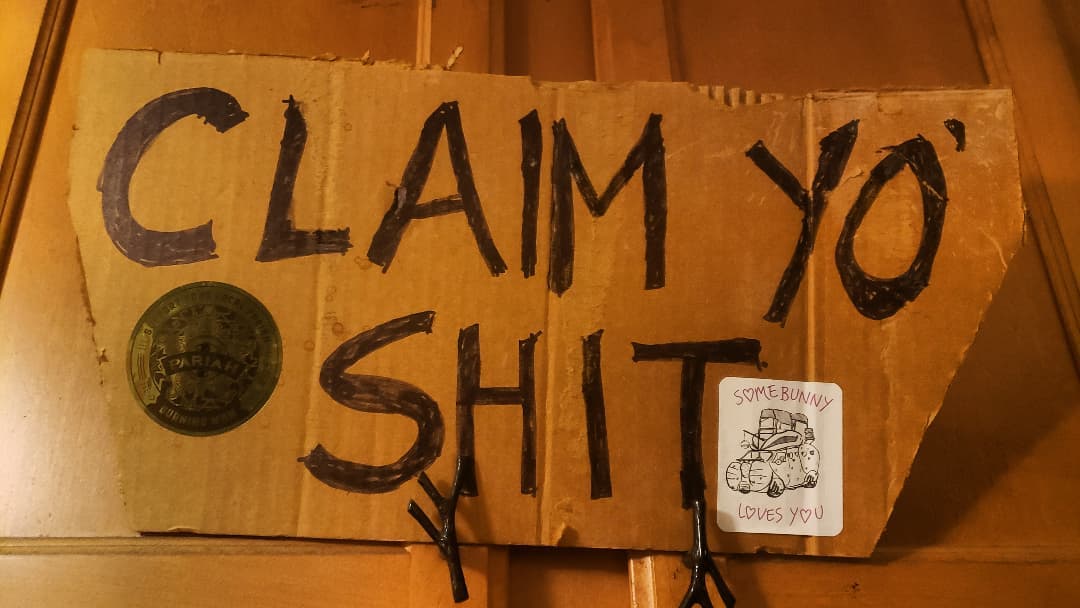 CLAIM YO'
SHIT
PARIAH
BURNING MAN
SOMEBUNNY
LOVES YOU